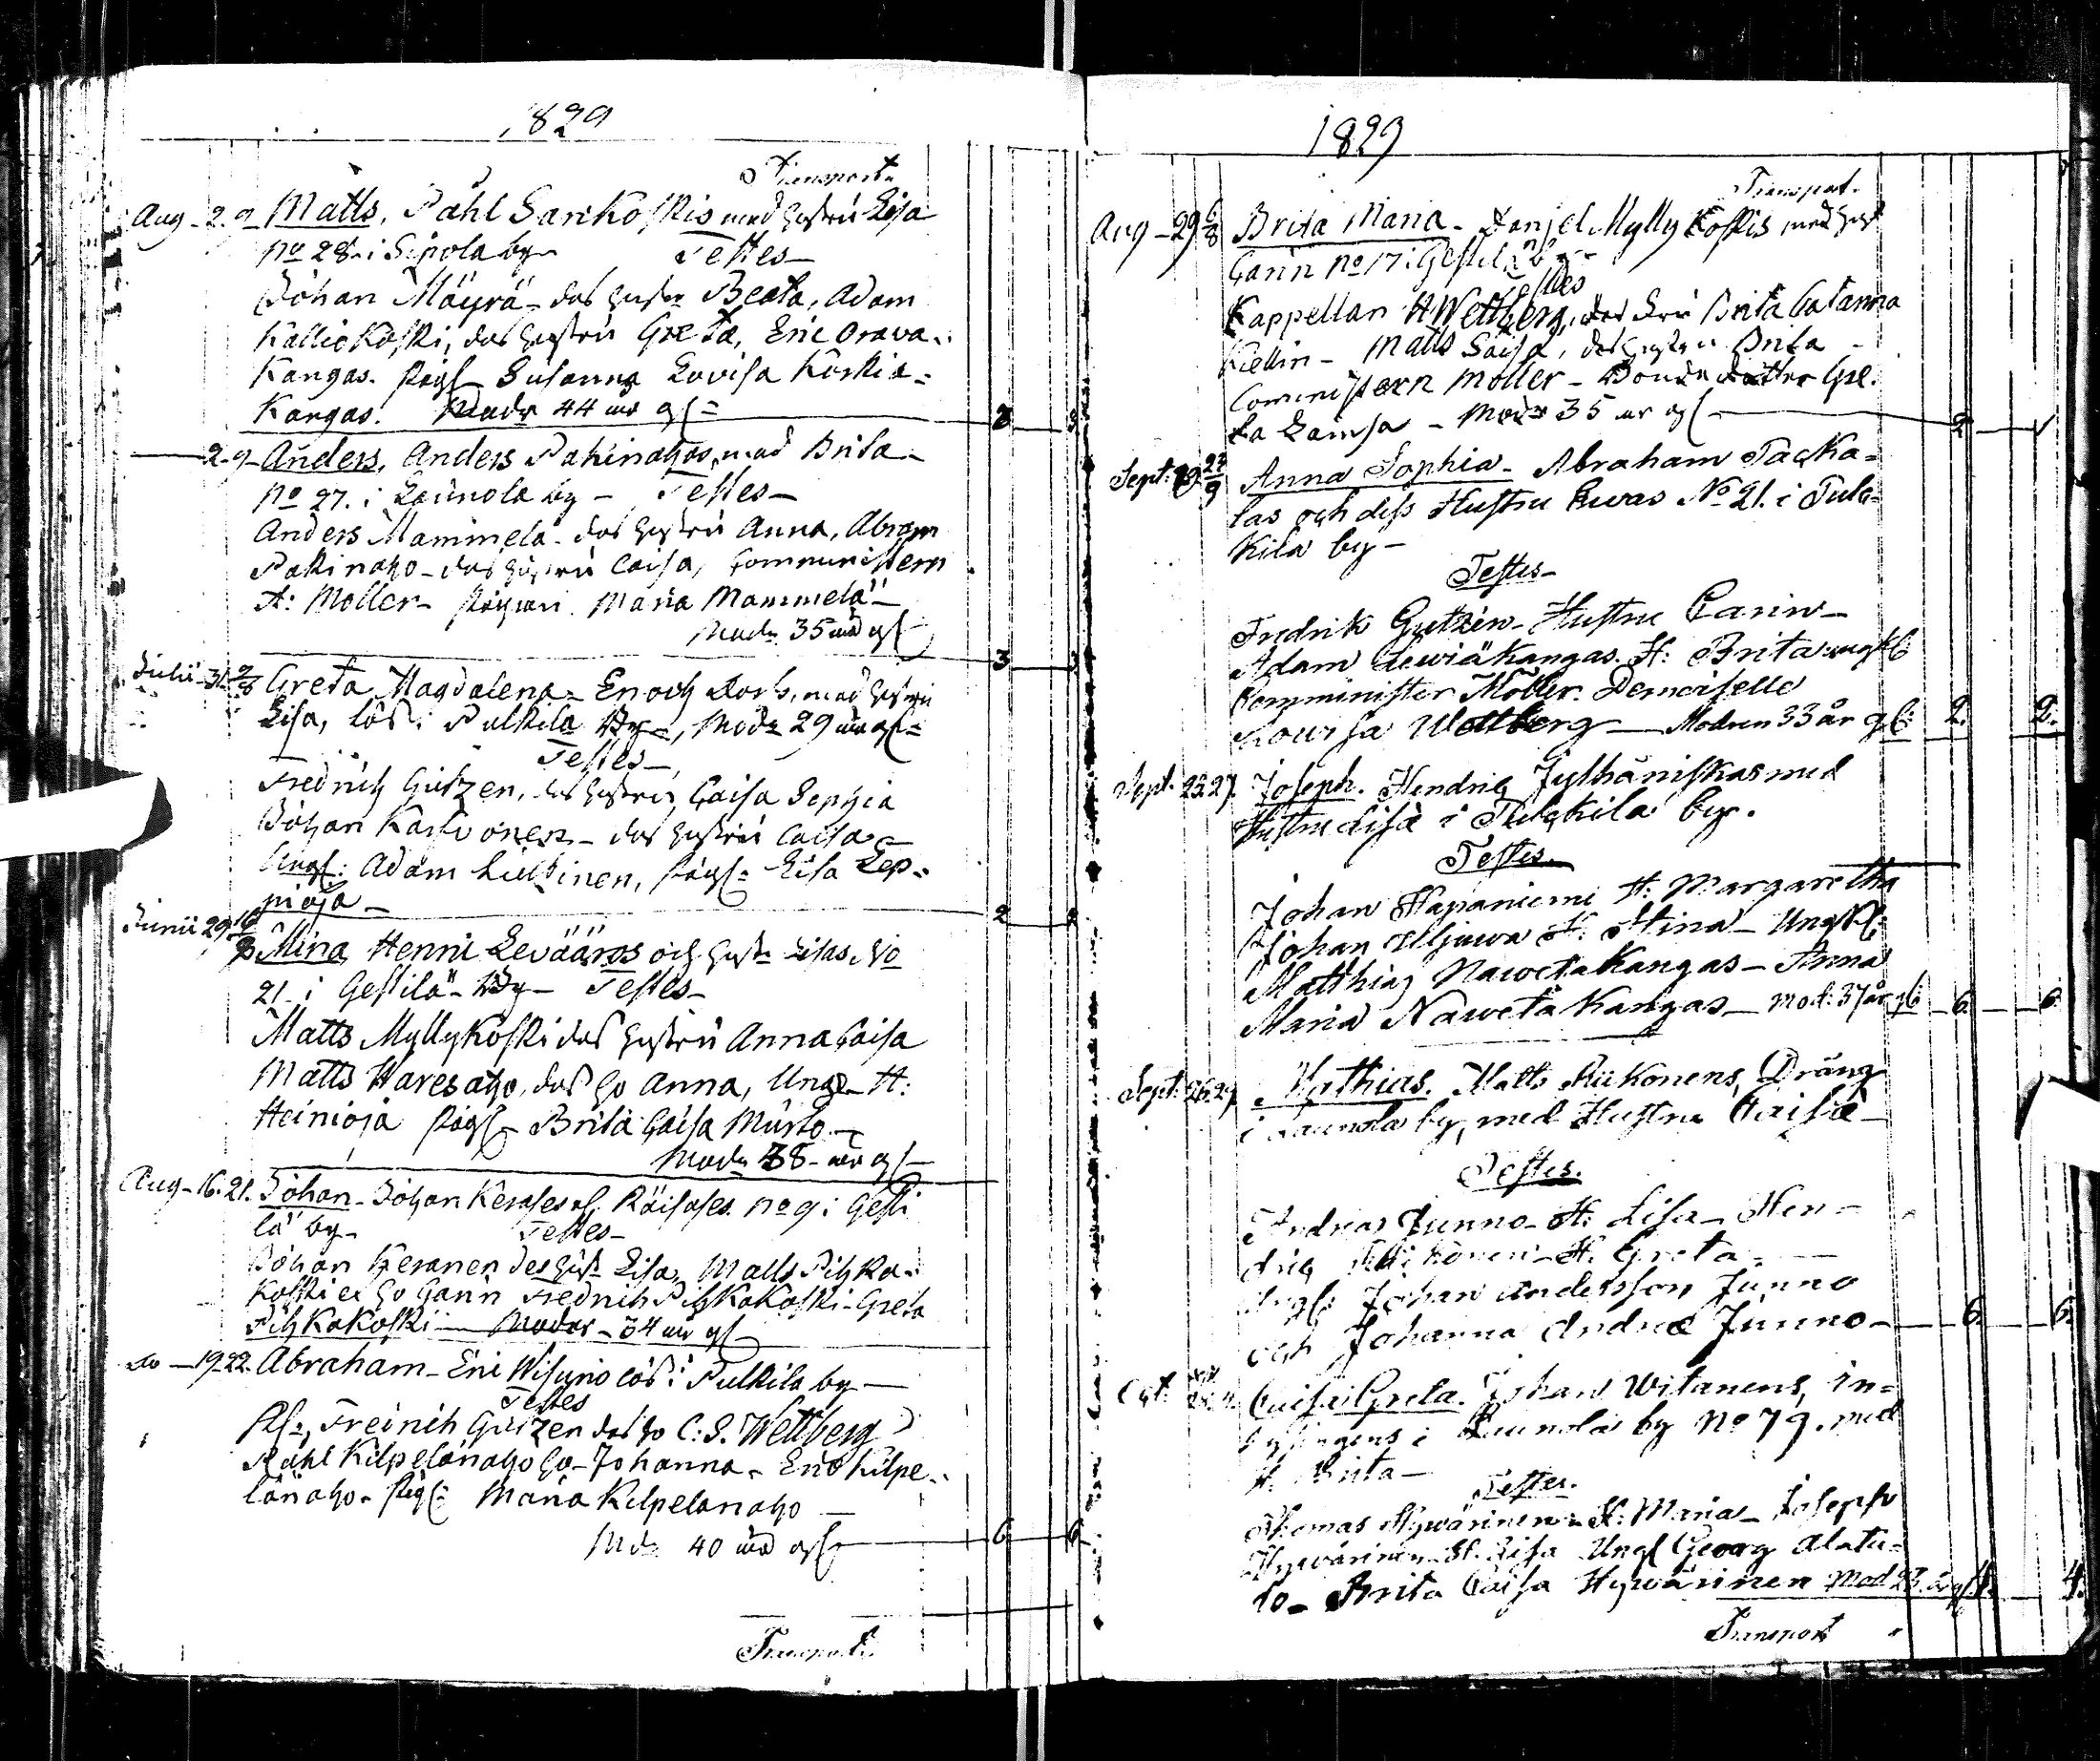 1829
Transport
Aug - 2. 9 Matts, Påhl Sarikoskis med hustru Lisa
No 28. i Sipola by - Testes -
Johan Mäyrä - das hustru Beata, Adam
Kalliokoski, das hustru Greta, Eric Orava-
Kangas. pigan Susanna Lovisa Koskia=
Kangas. Modr 44 år gl= 3 3
2. 9 Anders, Anders Pakinahos, med Brita -
No 27. i Launola by - Testes -
Anders Mammela - das hustru Anna, Abram
Pakinaho - das hustru Caisa, Comministern
A: Moller - pigan Maria Mammelä -
Modr 35 år gl 3
Julii - 31. 2/8 Greta Magdalena - Enoch med hustru
Lisa, lös i Pulkila By -, Modr 29 år gl=
Testes -
Fredrich Gutzen, das hustru Caisa Sophia
Johan Karvonen - das hustru Caisa -
Ungl: Adam Liukinen, pigl= Lisa Lep-
pioja - 2 2
Junii 29 Stina Henric Levääros och hust Lisas No
21 - i Gestilä - By - Testes -
Matts Myllykoski das hustru Anna Caisa
Matts Haresaho, das ho Anna, Ungl H:
Heinioja pigl Brita Caisa Murto -
Modr 38 - år gl -
Aug - 16. 21. Johan - Johan Kerases Räisases No 9 i Gesti
lä by - Testes -
Johan Keranen des hust Lisa, Matts Pihka-
koski ei ho Garin Fredrich Pihkakoski - Greta
Pihkakoski - Modr - 34 år gl
do - 19. 22. Abraham - Eric lös i Pulkila by -
Testes
Fredrich Gutzen das ho C: S. Wettberg
Påhl Kilpelänaho ho - Johanna - Eric Kilpe-
länaho - pigl: Maria Kilpelanaho -
Mdr 40 år gl 6 6
Transport
1829
Transport.
Aug - 29 6/8 Brita Maria - Danjel Myllykoskis med hust
Carin No 17 i Gestilä by -
Testes
Kappellan H Wettberg, das Fru Brita Catarina
Kellin - Matts Saisa, das hustru Brita -
Comministern Moller - Bonde dotter Gre-
ta Lamsa - Modr 35 år gl - 2
Sept: 27/9 Anna Sophia - Abraham Tacka=
las och dess Hustru Ewas No 21. i Pulc-
kila by -
Testes -
Fredrik Gutzén - Hustru Carin -
Adam Lewiäkangas. H: Brita ungkl:
Comminister Möller. Demoiselle
Lowisa Wettberg - Modren 33 år gl: 2. 2.
Sept. 25. 27. Joseph. Hendric Jylhäniskas med
Hustru Lisa i Pulckila by.
Testes.
Johan Hapaniemi H: Margaretha
Johan Iljuwa H: Stina - Ungkl:
Matthias Nawetakangas - Anna
Maria Nawetakangas - mod: 37 år gl: 6. 6.
Sept. 26. 27 Mathias. Matts Riikonens, Dräng
i Launola by, med Hustru Caisa -
Testes.
Andreas Junno - H: Lisa - Hen-
dric Riikonen - H. Greta -
ungl: Johan Andersson Junno
och Johanna Andreæ Junno - 6. 6.
Oct: Caisa Greta. Johan Witanens, in-
hysingens i Launola by No 79. med
H. Brita -
Testes.
Thomas Hywärinen - H: Maria - Joseph
Hywärinen - H. Lisa Ungl Georg Alatu-
lo - Brita Caisa Hywärinen Mod 23. år gl. 4.
Transport